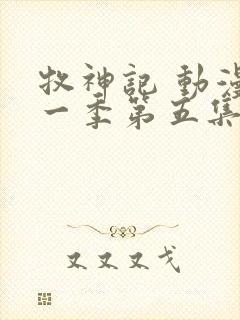 牧神記 動漫
一季第五集
又又又戈